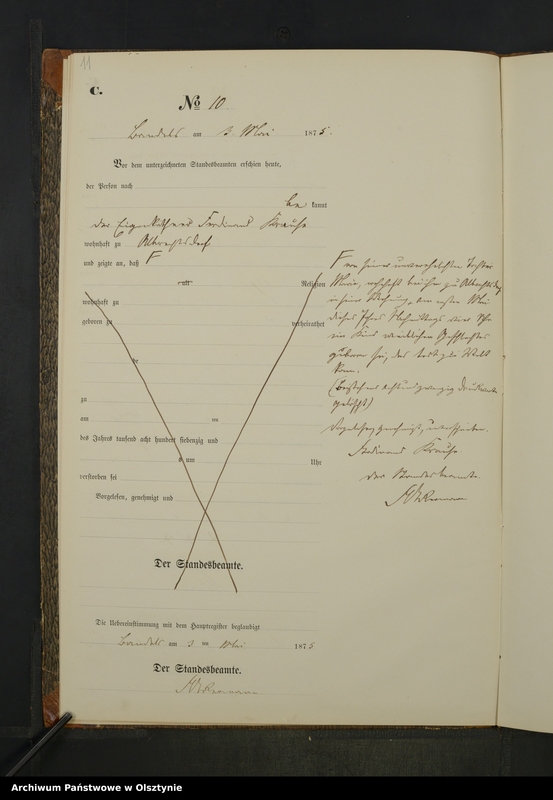 11
C.
No 10
am 3 Mai 1875.
Vor dem unterzeichneten Standesbeamten erschien heute,
der Person nach
be kannt
der Eigenkäthner Ferdinand Krause
wohnhaft zu Albrechtsdorf
und zeigte an, daß F
alt Religion
wohnhaft zu
geboren zu verheirathet
zu
am
des Jahres tausend acht hundert siebenzig und
um Uhr
verstorben sei
Vorgelesen, genehmigt und
Der Standesbeamte.
F von seiner unverehelichten Tochter
Maria, wohnhaft bei ihm zu Albrechtsdorf
in seiner Wohnung, am ersten Mai
dieses Jahres Nachmittags vier Uhr
ein Kind weiblichen Geschlechts
geboren sei, das todt zur Welt
kam.
(Vorstehend achtundzwanzig Druckworte
gelöscht)
Vorgelesen, genehmigt, unterschrieben.
Ferdinand Krause
Der Standesbeamte.
Die Uebereinstimmung mit dem Hauptregister beglaubigt
am 3 ten Mai 1875
Der Standesbeamte.
Archiwum Państwowe w Olsztynie